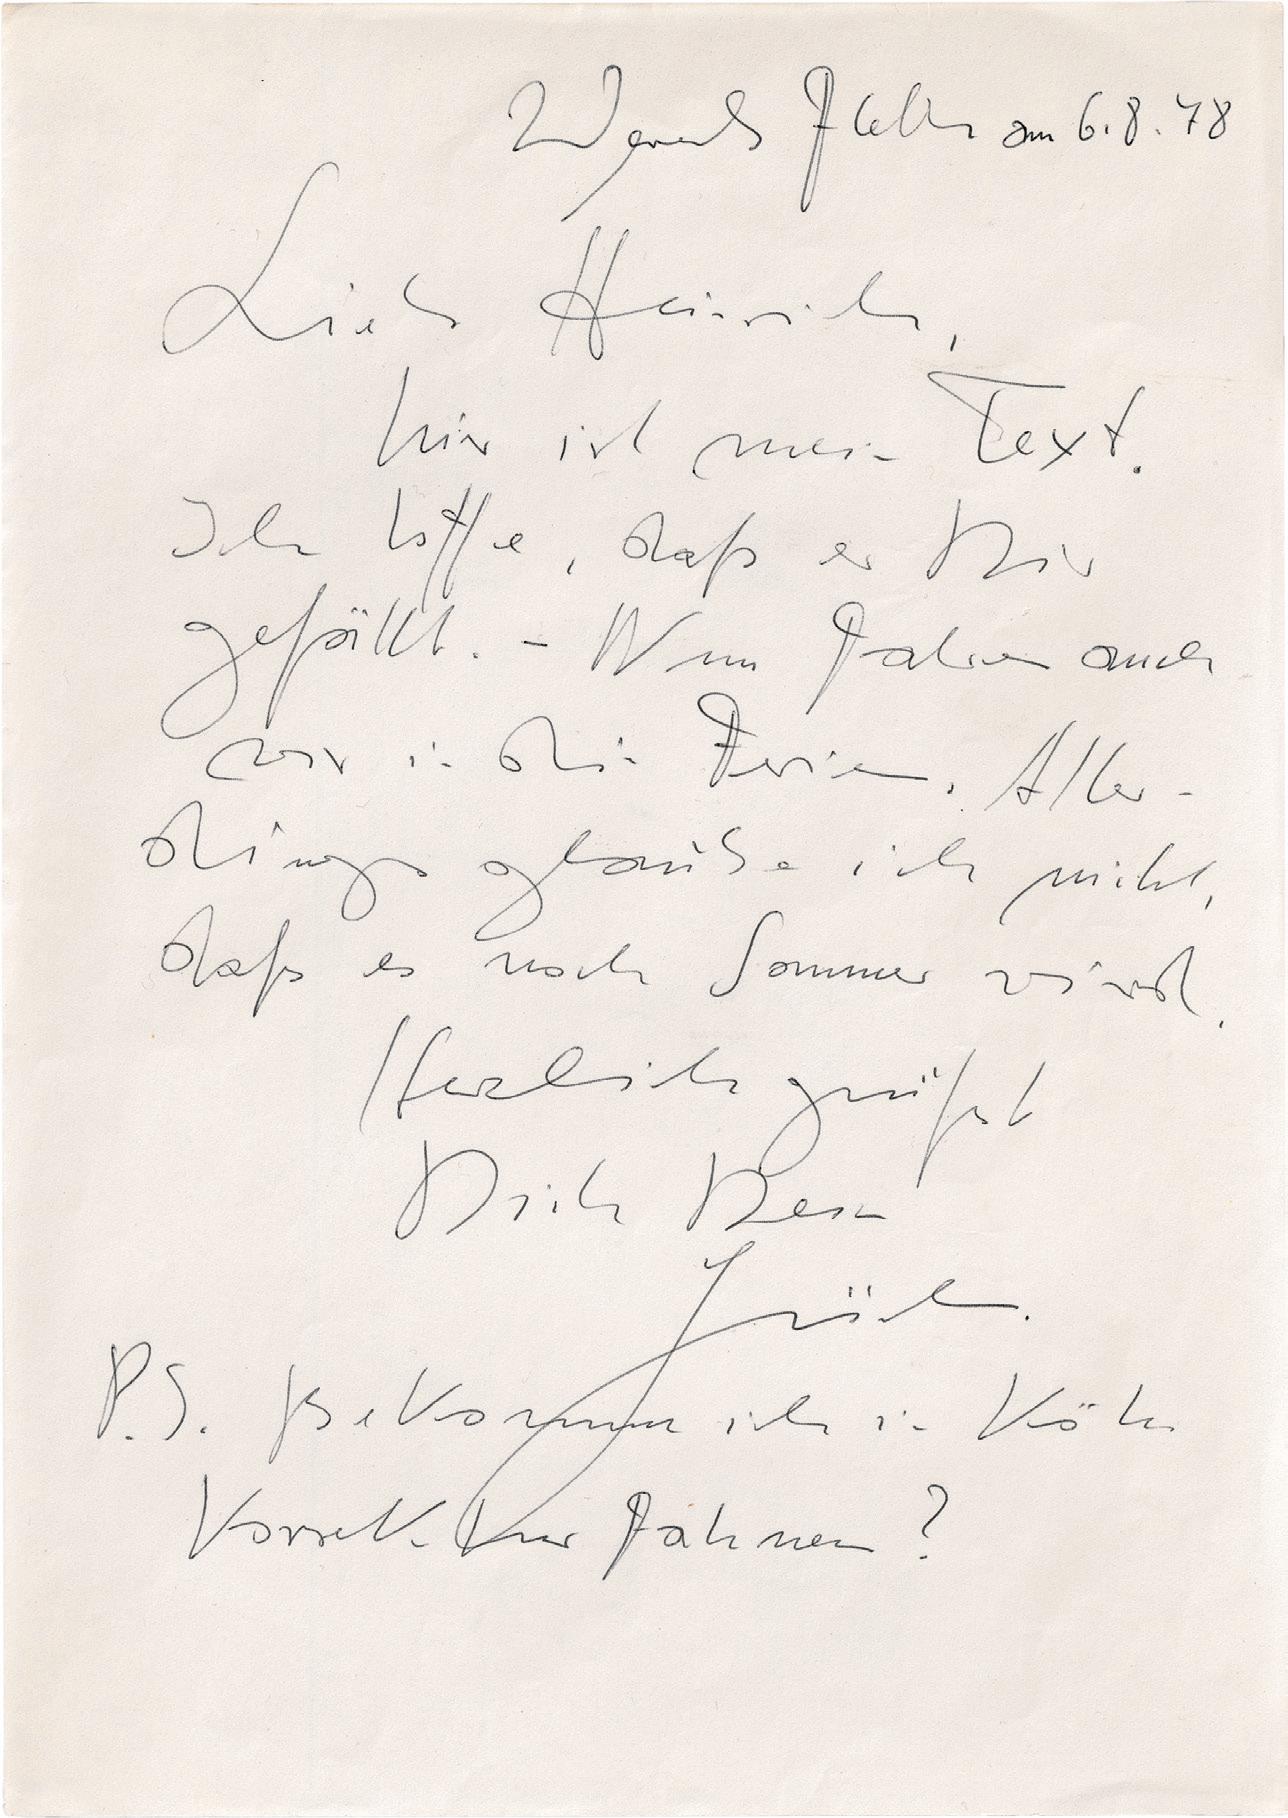 am 6.8.78
Lieber Heinrich,
hier ist mein Text.
Ich hoffe, daß er Dir
gefällt. – Nun fahren auch
wir in die Ferien. Aller-
dings glaube ich nicht,
daß es noch Sommer wird.
Herzlich grüßt
Dich Dein
P.S. Bekomme ich in Köln
Korrekturfahnen?